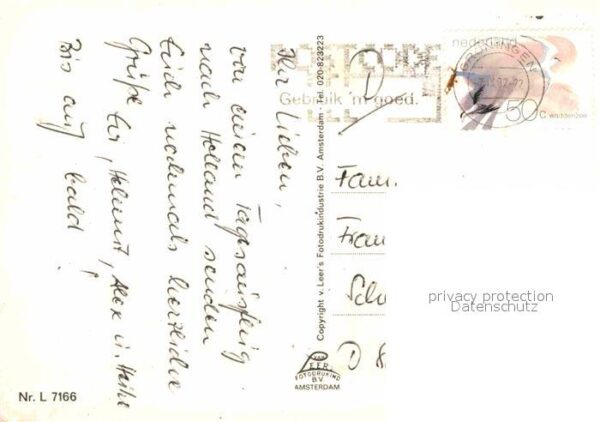 Ihr Lieben,
von einem Tagesausflug
nach Holland senden
Euch nochmals herzliche
Grüße Ihr, Helmut, Alex u. Heike
Bis auf bald!
Nr. L 7166
Copyright v. Leer's Fotodrukindustrie B.V. Amsterdam - Tel. 020-823223
VAN
LEER'S
FOTODRUKIND
B.V.
AMSTERDAM
POSTCODE
Gebruik 'm goed.
nederland
50c waddenzee
D
Fam.
Fran
Sch
D 8
privacy protection
Datenschutz